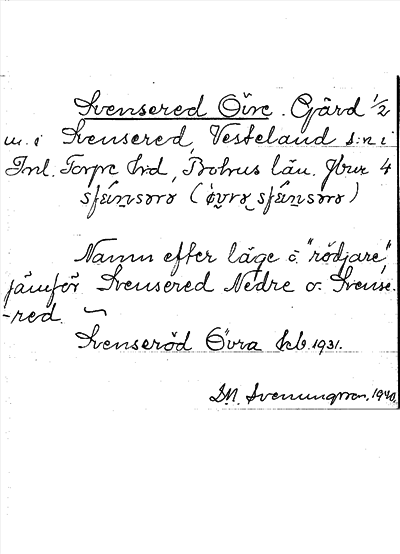 Svensered Övre. Gård 1/2
m. i Svensered, Vesteland s:n i
Inl. Torpe hrd, Bohus län. Jbnr 4

Namn efter läge o. "rödjare",
jämför Svensered Nedre o. Svense-
-red. ~
Svenseröd Övra Jrb. 1931.
D.N. Svenungsson. 1940.